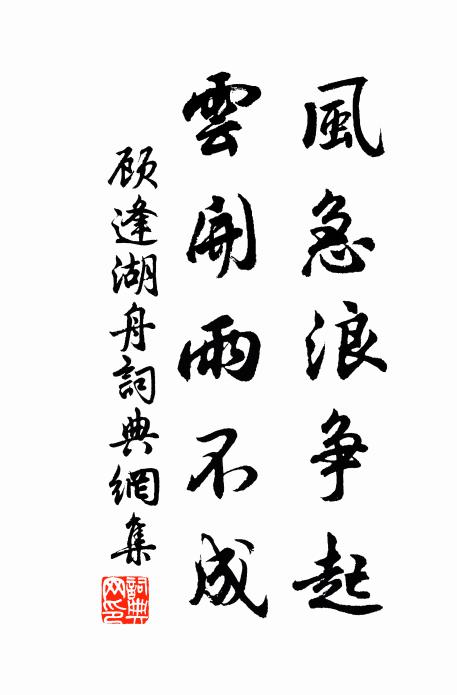 風急浪争起
雲開雨不成
顾逢湖舟詞典網集
詞典
网印